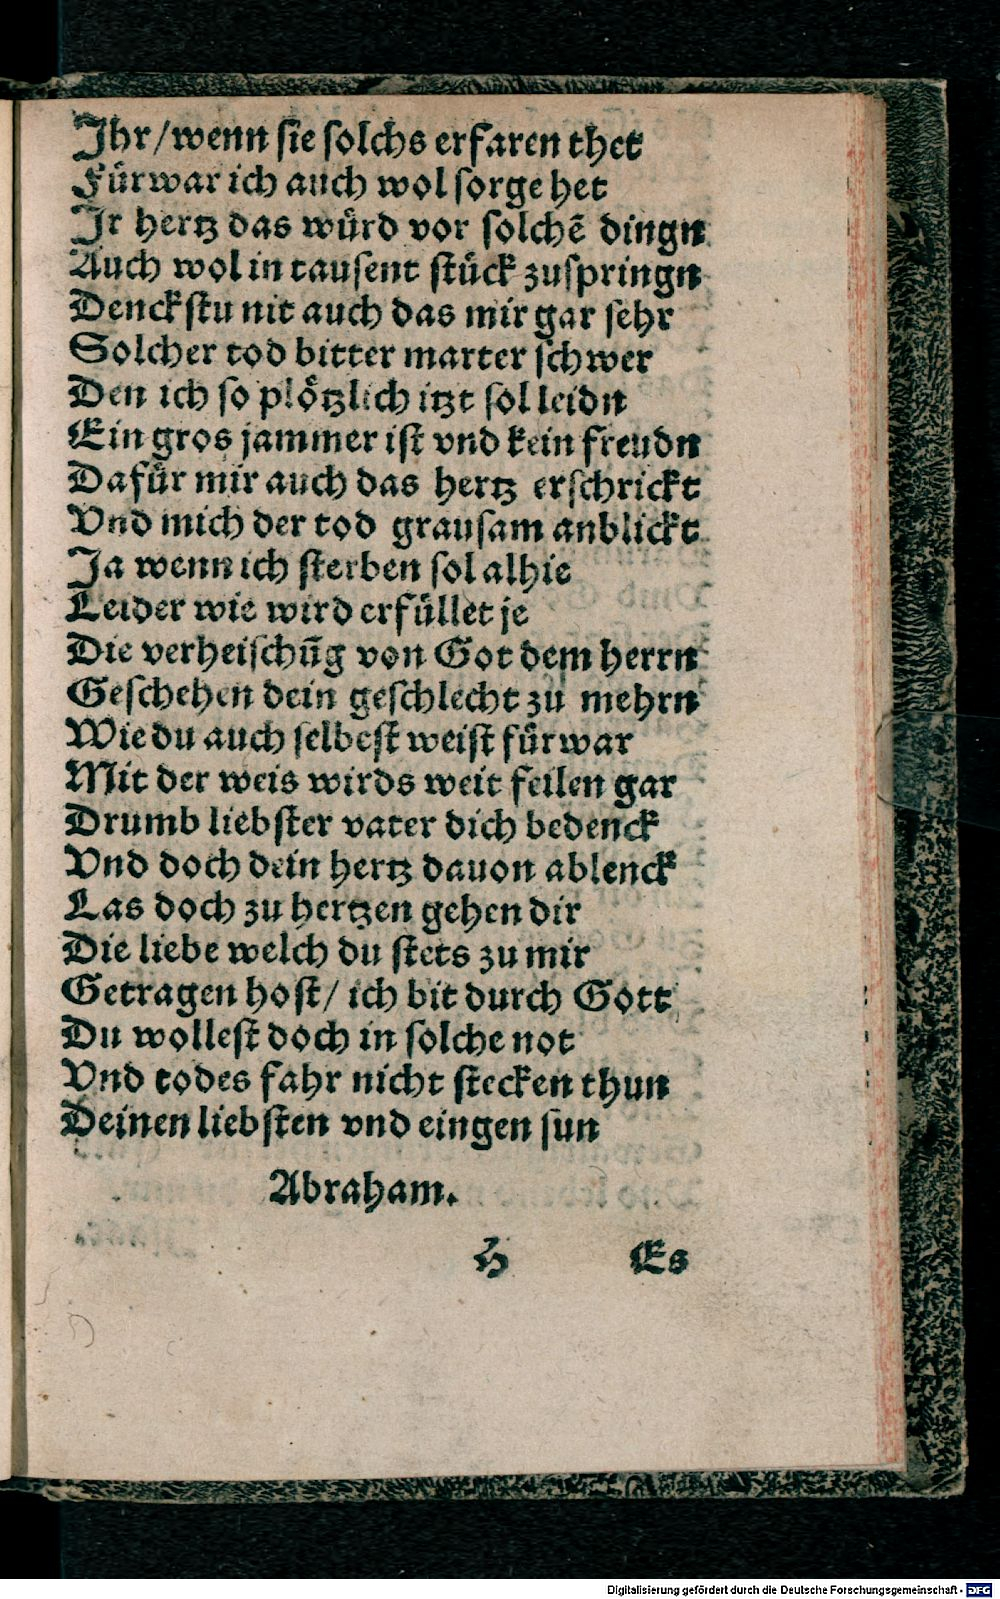 Jhr / wenn sie solchs erfaren thet
Fürwar ich auch wol sorge het
Jr hertz das würd vor solchẽ dingn
Auch wol in tausent stück zuspringn
Denckstu nit auch das mir gar sehr
Solcher tod bitter marter schwer
Den ich so plötzlich itzt sol leidn
Ein gros jammer ist vnd kein freudn
Dafür mir auch das hertz erschrickt
Vnd mich der tod grausam anblickt
Ja wenn ich sterben sol alhie
Leider wie wird erfüllet je
Die verheischũg von Got dem herrn
Geschehen dein geschlecht zu mehrn
Wie du auch selbest weist fürwar
Mit der weis wirds weit feilen gar
Drumb liebster vater dich bedenck
Vnd doch dein hertz dauon ablenck
Las doch zu hertzen gehen dir
Die liebe welch du stets zu mir
Getragen host / ich bit durch Gott
Du wollest doch in solche not
Vnd todes fahr nicht stecken thun
Deinen liebsten vnd eingen sun
Abraham.
H Es
Digitalisierung gefördert durch die Deutsche Forschungsgemeinschaft - DFG